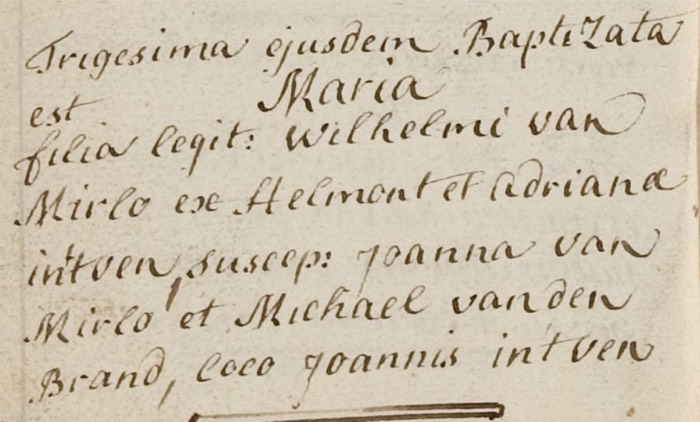 Trigesima ejusdem BaptiZata
est Maria
filia legit: Wilhelmi van
Mirlo ex Helmont et Adrianæ
in't ven, suscep: Joanna van
Mirlo et Michael van den
Brand, loco Joannis in't ven